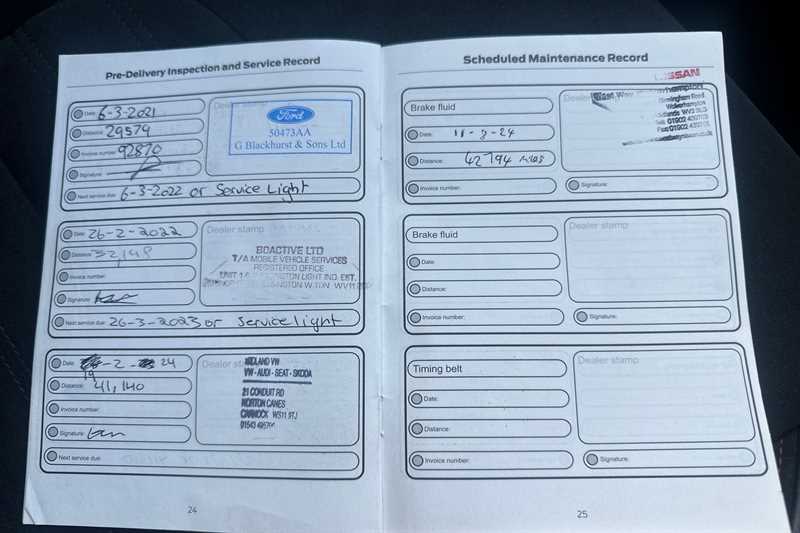 Pre-Delivery Inspection and Service Record
Date: 6-3-2021
Distance: 29579
Invoice number: 92870
Signature:
Next service due: 6-3-2022 or Service Light
Dealer stamp
Ford
50473AA
G Blackhurst & Sons Ltd
Date: 26-2-2022
Distance:
Invoice number:
Signature:
Next service due: 26-3-2023 or Service light
Dealer stamp
BOACTIVE LTD
T/A MOBILE VEHICLE SERVICES
REGISTERED OFFICE
LIGHT IND. EST.
W.TON WV11
Date: 19-2-24
Distance: 41,140
Invoice number:
Signature:
Next service due:
Dealer stamp
MIDLAND VW
VW-AUDI-SEAT-SKODA
21 CONDUIT RD
NORTON CANES
CANNOCK WS11 9TJ
24
Scheduled Maintenance Record
Brake fluid
Date: 11-3-24
Distance: 42794 Miles
Invoice number:
Dealer stamp
NISSAN
West Way
Birmingham Road
Wolverhampton
Signature:
Brake fluid
Date:
Distance:
Invoice number:
Dealer stamp
Signature:
Timing belt
Date:
Distance:
Invoice number:
Dealer stamp
Signature:
25